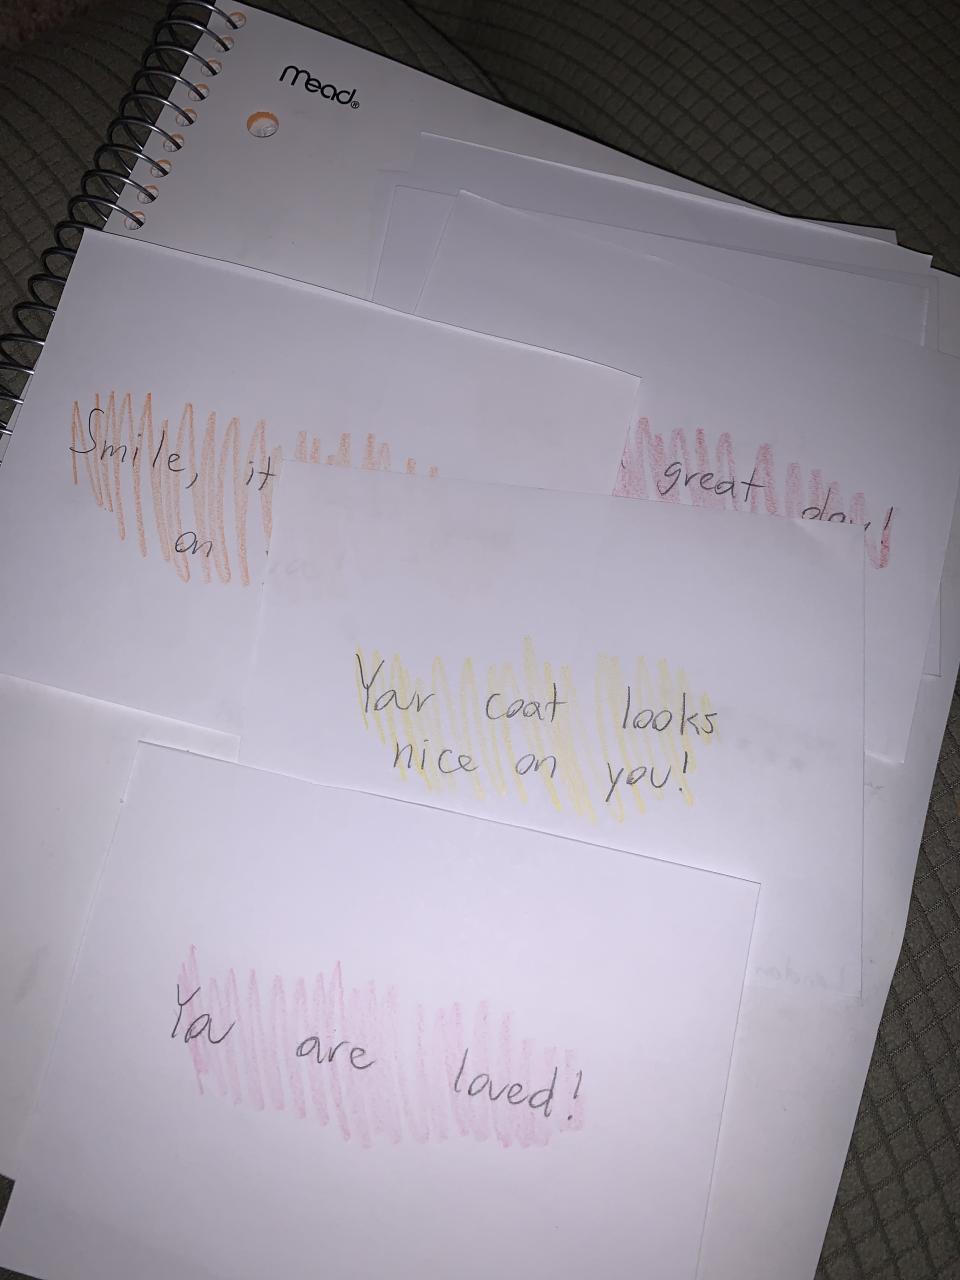 Mead®
Smile, it
on
great day!
Your coat looks
nice on you!
You are loved!